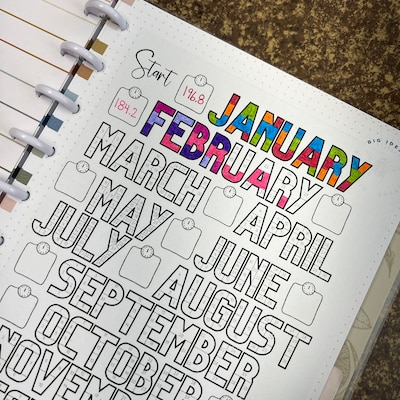 Start
196.8 JANUARY
184.2 FEBRUARY
MARCH APRIL
MAY JUNE
JULY AUGUST
SEPTEMBER
OCTOBER
BIG IDE